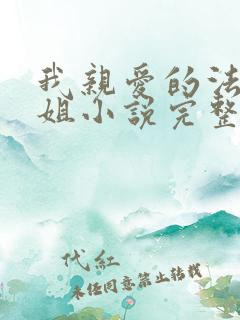 我親愛的法
姐小說完整
代紅
未經同意禁止轉載